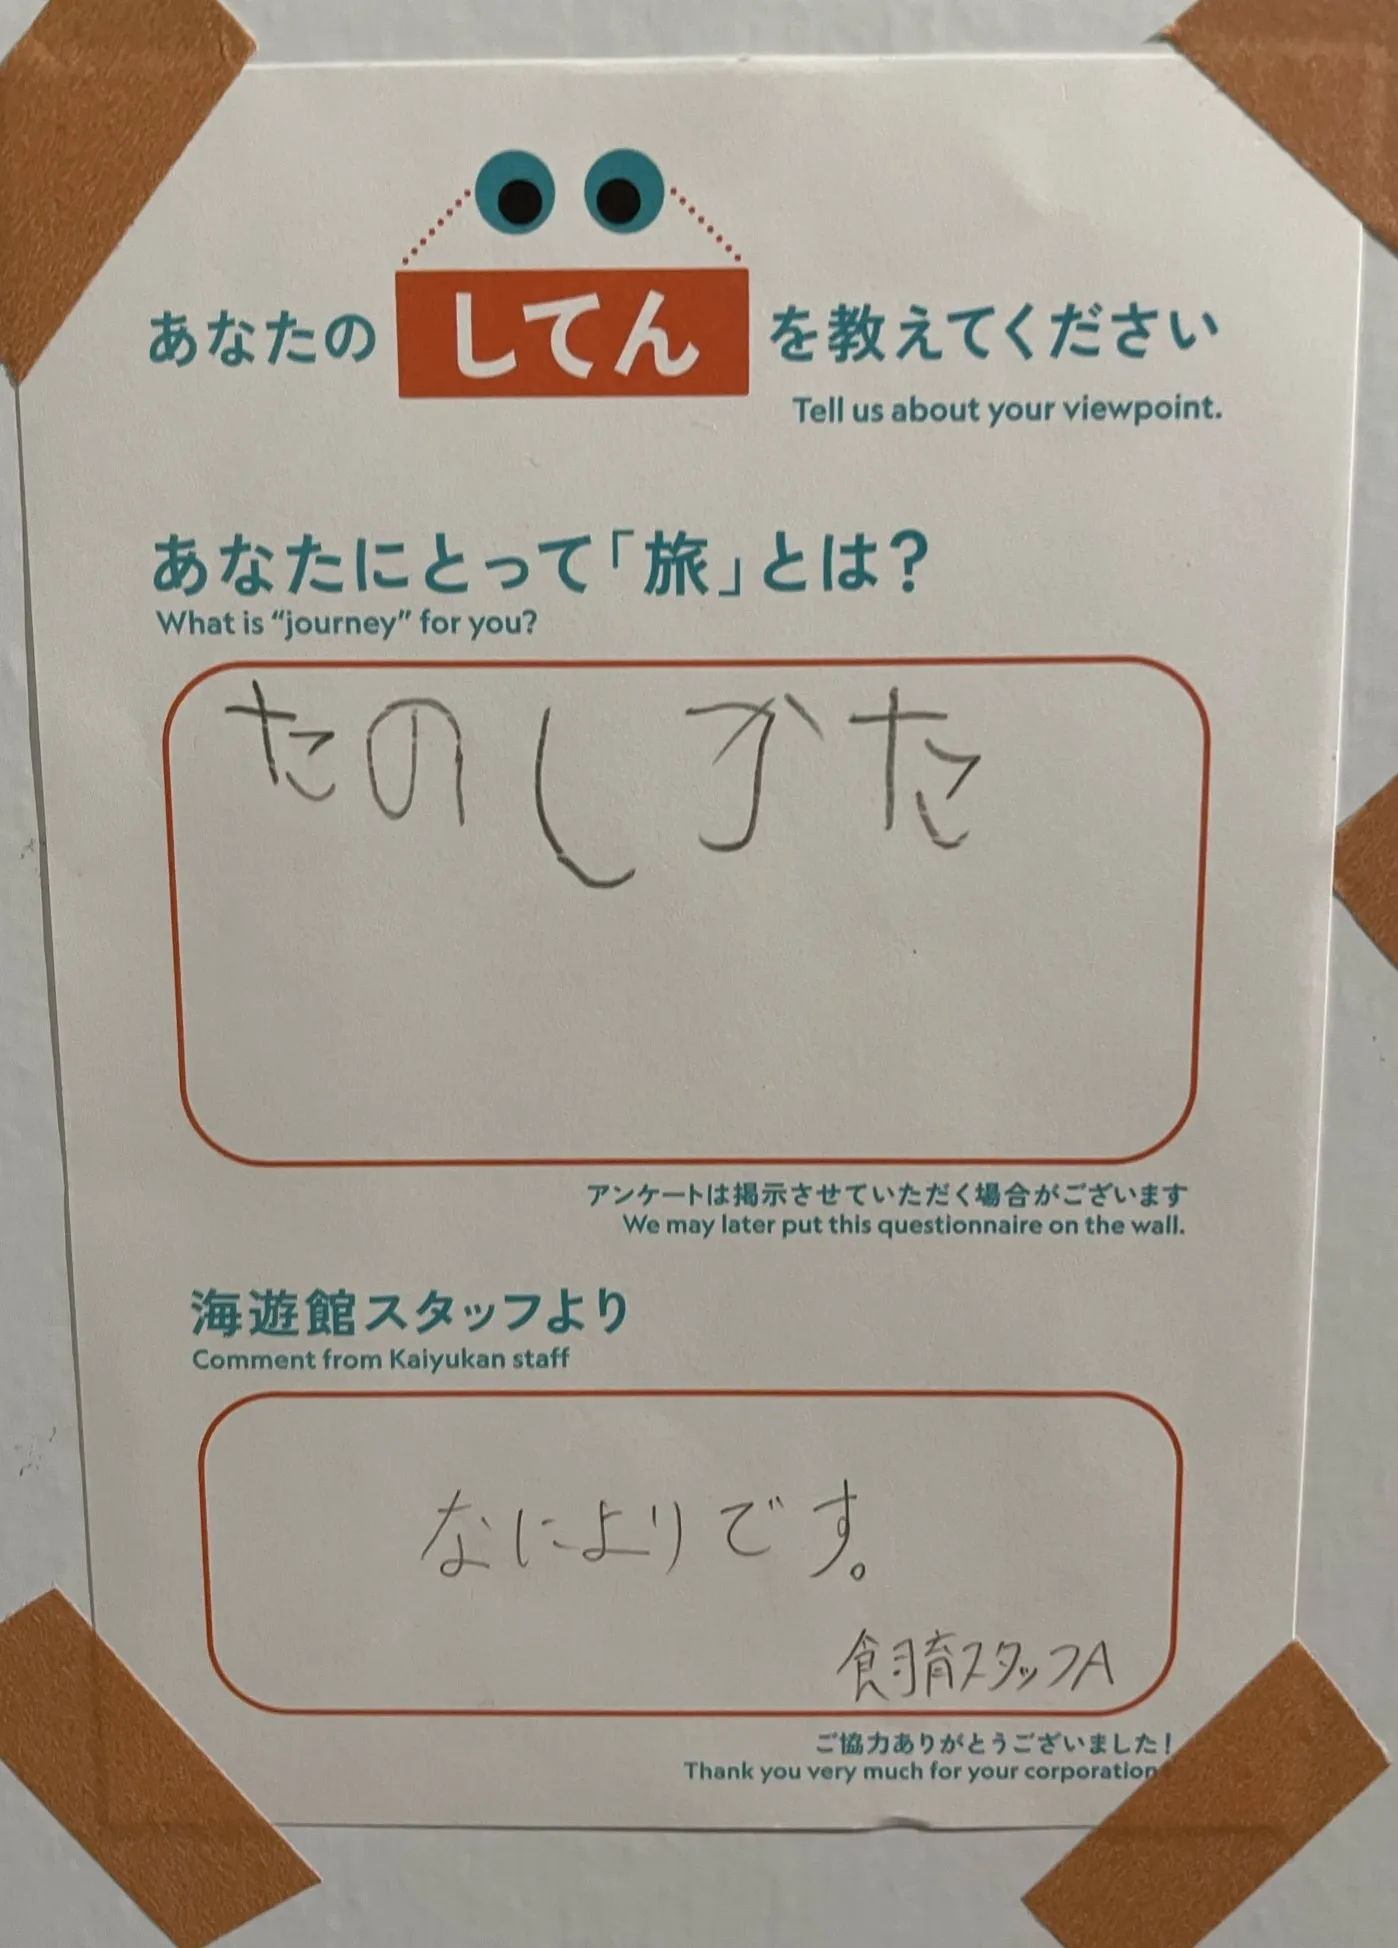 あなたの してん を教えてください
Tell us about your viewpoint.
あなたにとって「旅」とは?
What is “journey” for you?
たのしかた
アンケートは掲示させていただく場合がございます
We may later put this questionnaire on the wall.
海遊館スタッフより
Comment from Kaiyukan staff
なによりです。
飼育スタッフA
ご協力ありがとうございました!
Thank you very much for your corporation